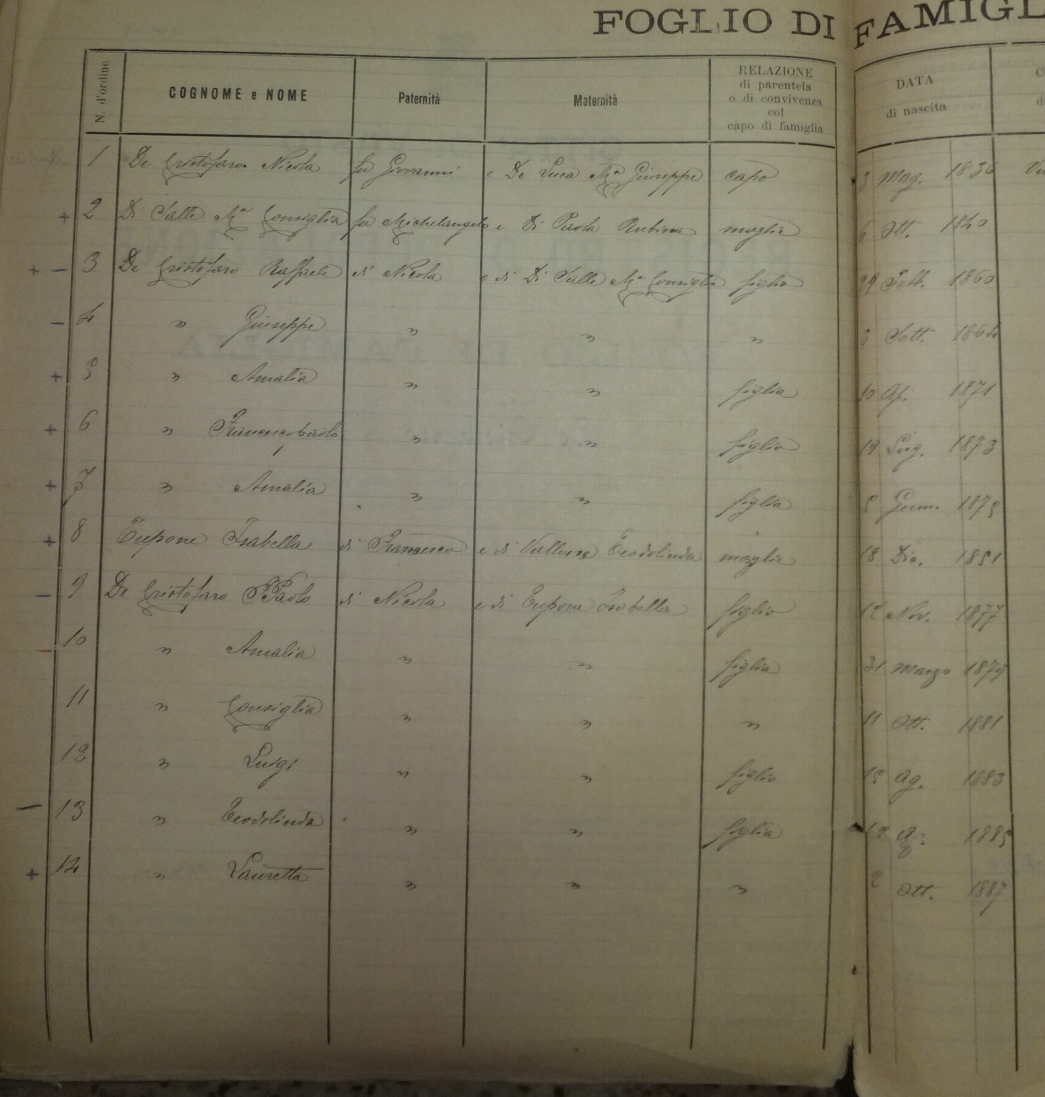 FOGLIO DI FAMIGL
N. d'ordine COGNOME e NOME Paternità Maternità RELAZIONE di parentela o di convivenza col capo di famiglia DATA di nascita
1 De Cristofaro Nicola fu Giovanni e De Luca Mª Giuseppe capo 3 Mag. 1836
+ 2 Di Salle Mª Consiglia fu Michelangelo e Di Paola moglie 6 Ott. 1840
+ – 3 De Cristofaro Raffaele di Nicola e di Di Salle Mª Consiglia figlio 29 1860
– 4 " Giuseppe " " " Sett. 1864
+ 5 " Amalia " " figlia 10 Ap. 1871
+ 6 " Francescopaolo " " figlio 19 Lug. 1873
+ 7 " Amalia " " figlia 5 Genn. 1875
+ 8 Tupone Isabella di Francesco e di Teodolinda moglie 18 Dic. 1851
– 9 De Cristofaro Paolo di Nicola e di Tupone Isabella figlio 12 Nov. 1877
– 10 " Amalia " " figlia 31 Marzo 1879
11 " Consiglia " " " 11 Ott. 1881
12 " Luigi " " figlio 15 Ag. 1883
– 13 " Teodolinda " " figlia 12 1885
+ 14 " Lauretta " " " 2 Ott. 1887